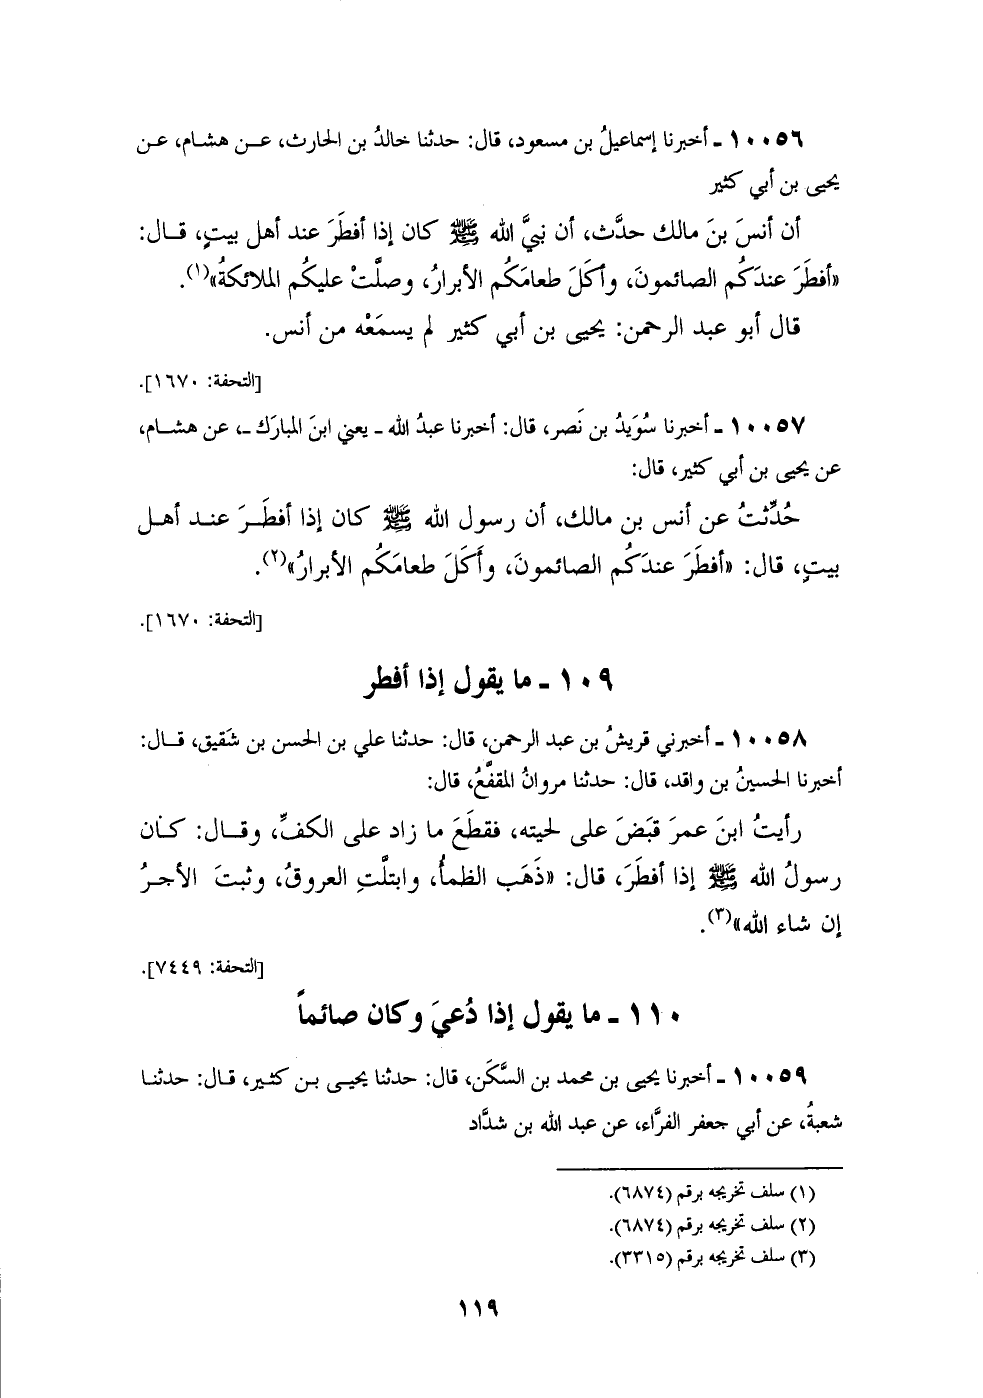 ١٠٠٥٦ ـ أخبرنا إسماعيلُ بن مسعود، قال: حدثنا خالدُ بن الحارث، عـن هشـام، عـن
يحيى بن أبي كثير
أن أنسَ بنَ مالك حدَّث، أن نبيَّ الله ﷺ كان إذا أفطَرَ عند أهل بيتٍ، قـال:
«أفطَرَ عندَكُم الصائمونَ، وأكَلَ طعامَكُم الأبرارُ، وصلَّتْ عليكُم الملائكةُ»(١).
قال أبو عبد الرحمن: يحيى بن أبي كثير لم يسمَعْه من أنس.
[التحفة: ١٦٧٠].
١٠٠٥٧ ـ أخبرنا سُوَيدُ بن نَصر، قال: أخبرنا عبدُ الله ـ يعني ابنَ المبارَك ـ، عن هشـام،
عن يحيى بن أبي كثير، قال:
حُدِّثتُ عن أنس بن مالك، أن رسول الله ﷺ كان إذا أفطَـرَ عنـد أهـل
بيتٍ، قال: «أفطَرَ عندَكُم الصائمونَ، وأَكَلَ طعامَكُم الأبرارُ»(٢).
[التحفة: ١٦٧٠].
١٠٩ ـ ما يقول إذا أفطر
١٠٠٥٨ ـ أخبرني قريشُ بن عبد الرحمن، قال: حدثنا علي بن الحسن بن شَقيق، قـال:
أخبرنا الحسينُ بن واقد، قال: حدثنا مروانُ المقفَّعُ، قال:
رأيتُ ابنَ عمرَ قبَضَ على لحيته، فقطَعَ ما زاد على الكفِّ، وقـال: كـان
رسولُ الله ﷺ إذا أفطَرَ، قال: «ذَهَب الظمأُ، وابتلَّتِ العروقُ، وثبتَ الأجـرُ
إن شاء الله»(٣).
[التحفة: ٧٤٤٩].
١١٠ ـ ما يقول إذا دُعيَ وكان صائماً
١٠٠٥٩ ـ أخبرنا يحيى بن محمد بن السَّكَن، قال: حدثنا يحيـى بـن كثـير، قـال: حدثنـا
شعبةُ، عن أبي جعفر الفرَّاء، عن عبد الله بن شدَّاد
(١) سلف تخريجه برقم (٦٨٧٤).
(٢) سلف تخريجه برقم (٦٨٧٤).
(٣) سلف تخريجه برقم (٣٣١٥).
١١٩